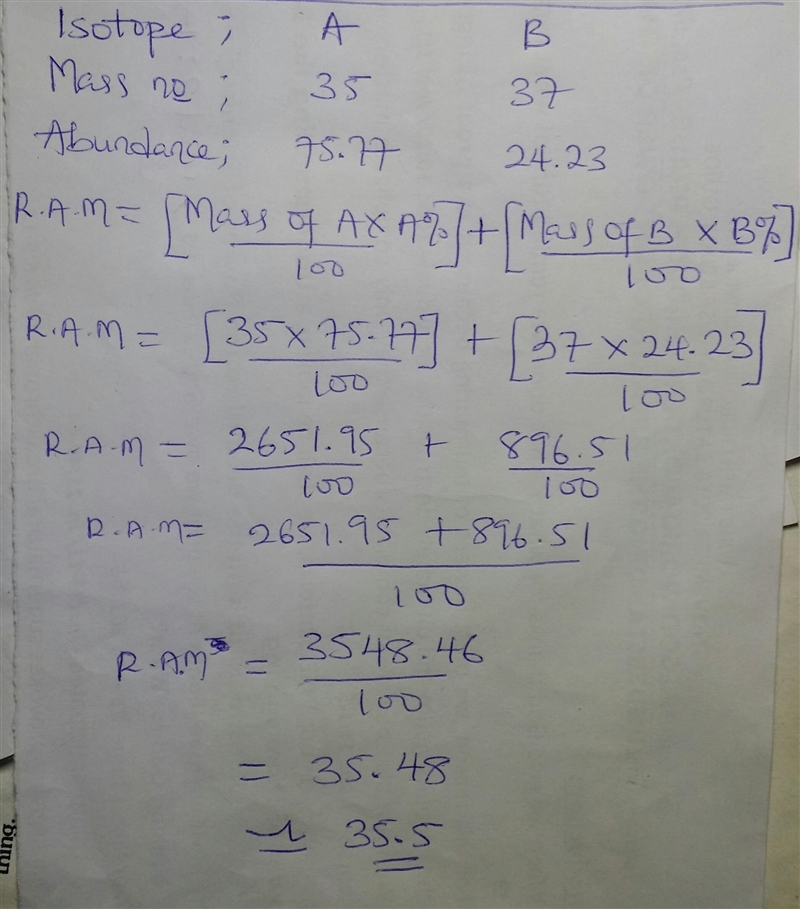 Isotope ; A B
Mass no ; 35 37
Abundance; 75.77 24.23
R.A.M = [Mass of A X A%] + [Mass of B X B%]
100 100
R.A.M = [35 X 75.77] + [37 X 24.23]
100 100
R.A.M = 2651.95 + 896.51
100 100
R.A.M = 2651.95 + 896.51
100
R.A.M = 3548.46
100
= 35.48
≃ 35.5
thing.